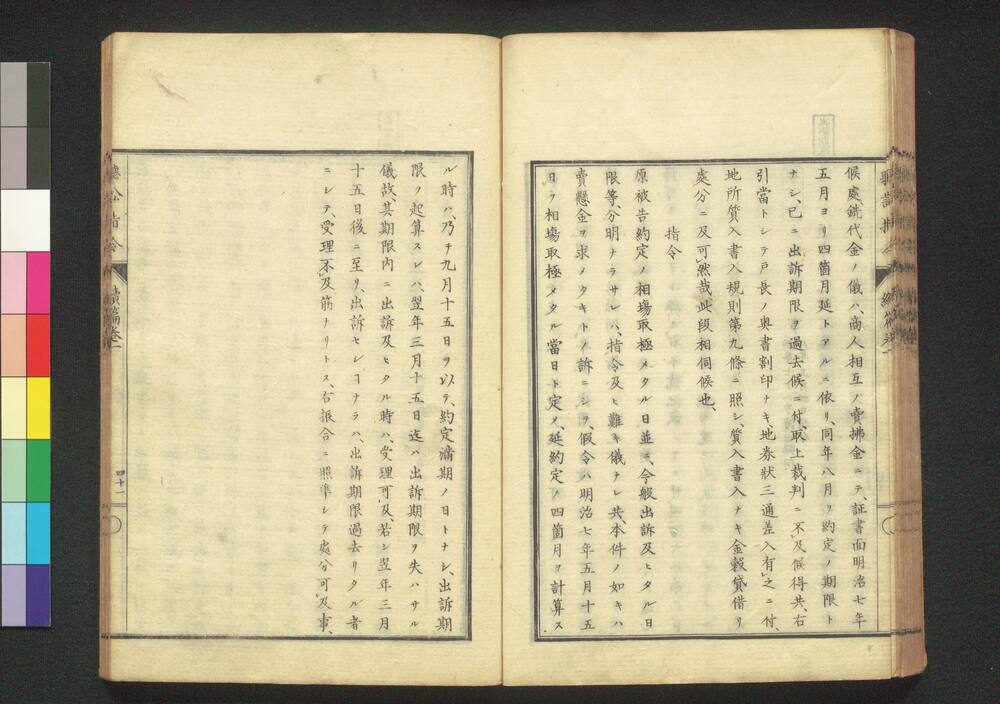 候處銑代金ノ儀ハ、商人相互ノ賣拂金ニテ、証書面明治七年
五月ヨリ四箇月延トアルニ依リ、同年八月ヲ約定ノ期限ト
ナシ、已ニ出訴期限ヲ過去候ニ付、取上裁判ニ不及候得共、右
引當トシテ戸長ノ奥書割印ナキ、地券狀三通差入有之ニ付、
地所質入書入規則第九條ニ照シ、質入書入ナキ金穀貸借ノ
處分ニ及可然哉此段相伺候也、
指令
原被告約定ノ相場取極メタル日並ニ、今般出訴及ヒタル日
限等、分明ナラサレハ、指令及ヒ難キ儀ナレ共、本件ノ如キハ
賣懸金ヲ求メタキトノ訴ニシテ、假令ハ明治七年五月十五
日ヲ相場取極メタル當日ト定メ、延約定ノ四箇月ヲ計算ス
ル時ハ、乃チ九月十五日ヲ以テ、約定滿期ノ日トナシ、出訴期
限ヲ起算スレハ、翌年三月十五日迄ハ出訴期限ヲ失ハサル
儀故、其期限内ニ出訴及ヒタル時ハ、受理可及、若シ翌年三月
十五日後ニ至リ、出訴セシヿナラハ、出訴期限過去リタル者
ニシテ、受理不及筋ナリトス、右振合ニ照準シテ處分可及事、
續篇卷一
四十一